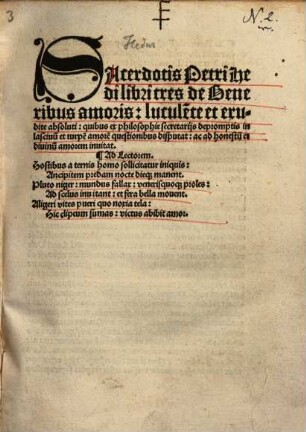 3
N. 2.
Hedus
SAcerdotis Petri He
di libri tres de Gene
ribus amoris: luculēte et eru-
dite absoluti: quibus ex philosophie secretarijs depromptis in
lasciuū et turpē amorē questionibus disputat: ac ad honestū et
diuinū amorem inuitat.
¶ Ad Lectorem.
Hostibus a ternis homo sollicitatur iniquis:
Ancipitem predam nocte dieq; manent.
Pluto niger: mundus fallax: venerisquoq; proles:
Ad scelus inuitant: et fera bella mouent.
Aligeri vites pueri quo noxia tela:
Hic clipeum sumas: victus abibit amor.